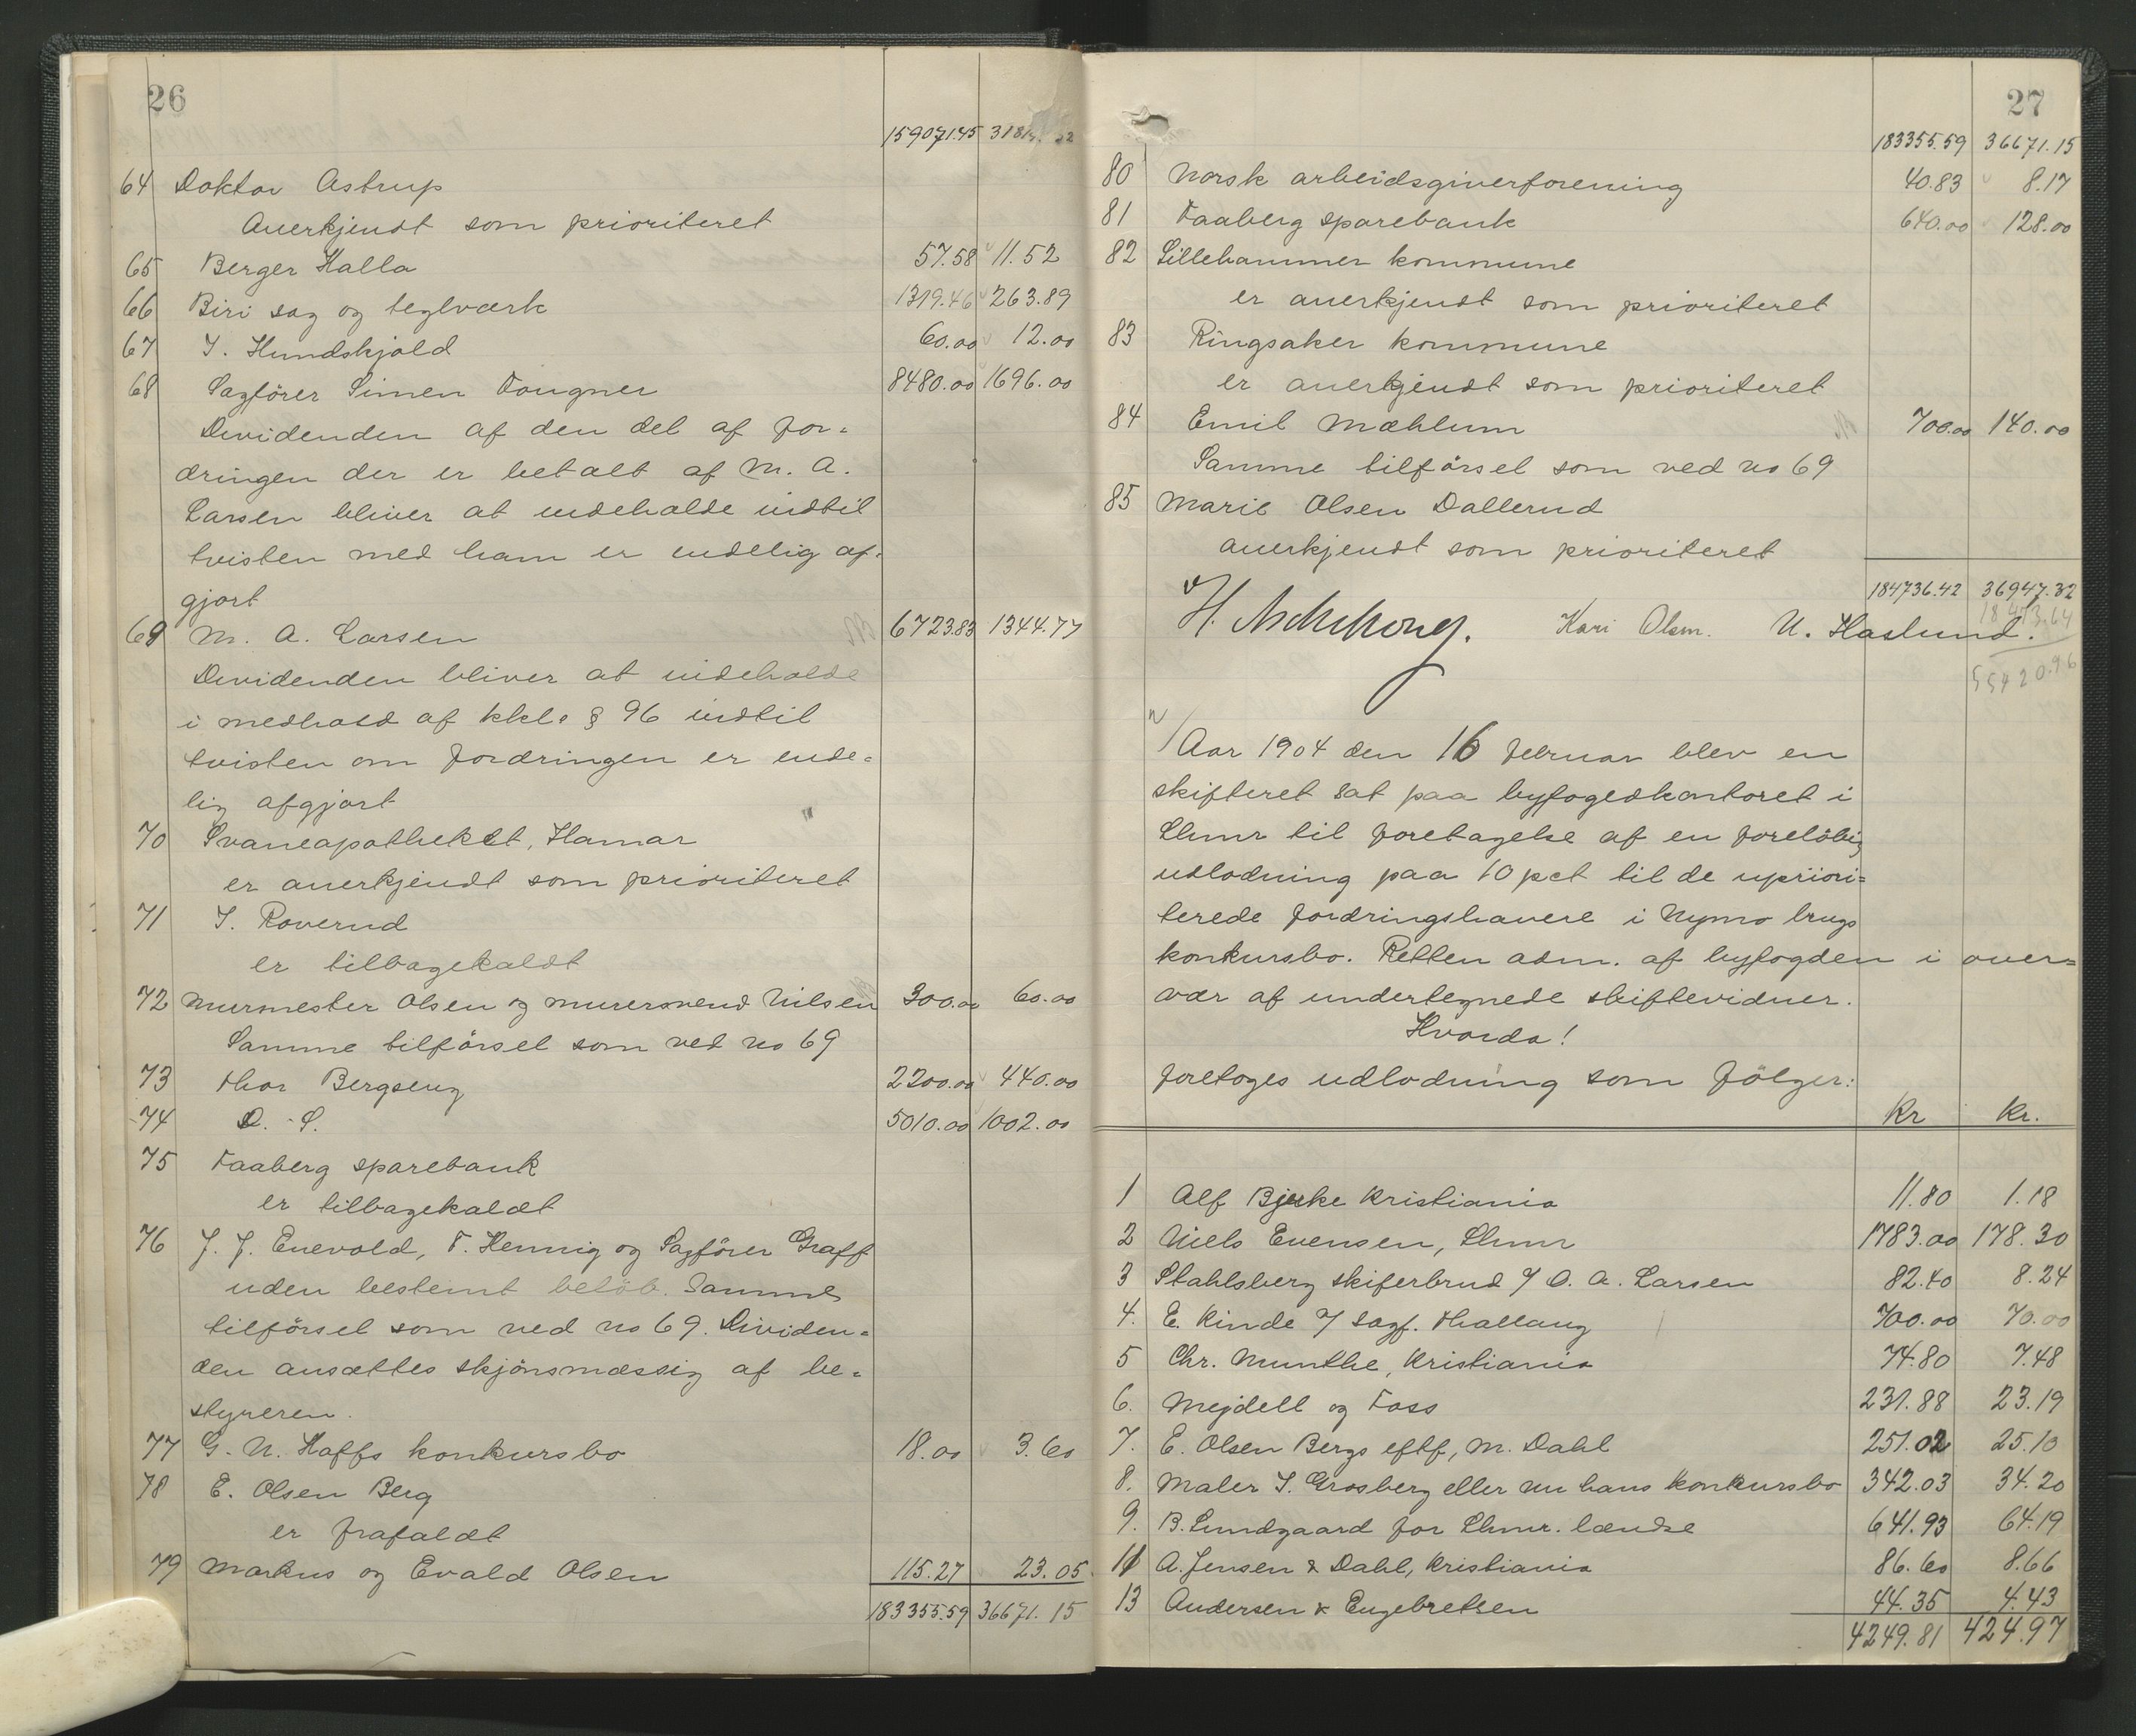 26
159071.45
64 Doktor Astrup
Anerkjendt som prioriteret
65 Berger Halla 57.58 11.52
66 Biri sag og teglværk 1319.46 263.89
67 I. Hundskjold 60.00 12.00
68 Sagfører Simen Fougner 8480.00 1696.00
Dividenden af den del af for-
dringen der er betalt af M. A.
Larsen bliver at indeholde indtil
tvisten med ham er endelig af-
gjort
69 M. A. Larsen 6723.83 1344.77
Dividenden bliver at indeholde
i medhold af kkl. § 96 indtil
tvisten om fordringen er ende-
lig afgjort
70 Svaneapotheket, Hamar
er anerkjendt som prioriteret
71 I. Roverud
er tilbagekaldt
72 Murmester Olsen og murersvend Nilsen 300.00 60.00
Samme tilførsel som ved no 69
73 Thor Bergseng 2200.00 440.00
74 D. S. 5010.00 1002.00
75 Faaberg sparebank
er tilbagekaldt
76 J. J. Enevold, F. Hennig og Sagfører Graff
uden bestemt beløb. Samme
tilførsel som ved no 69. Dividen-
den ansættes skjønsmæssig af be-
styreren.
77 G. N. Haffs konkursbo 18.00 3.60
78 E. Olsen Berg
er frafaldt
79 Markus og Evald Olsen 115.27 23.05
183355.59 36671.15
27
183355.59 36671.15
80 Norsk arbeidsgiverforening 40.83 8.17
81 Faaberg sparebank 640.00 128.00
82 Lillehammer kommune
er anerkjendt som prioriteret
83 Ringsaker kommune
er anerkjendt som prioriteret
84 Emil Mæhlum 700.00 140.00
Samme tilførsel som ved no 69
85 Marie Olsen Dallerud
anerkjendt som prioriteret
184736.42 36947.32
18473.64
H. Kari Olsen. N. Haslund.
55420.96
Aar 1904 den 16 februar blev en
skifteret sat paa byfogedkontoret i
Lhmr til foretagelse af en foreløbig
udlodning paa 10 pct til de upriori-
terede fordringshavere i Nymo brugs
konkursbo. Retten adm. af byfogden i over-
vær af undertegnede skiftevidner.
Hvorda!
foretoges udlodning som følger:
Kr Kr.
1 Alf Bjerke Kristiania 11.80 1.18
2 Niels Evensen, Lhmr 1783.00 178.30
3 Stahlsberg skiferbrud / O. A. Larsen 82.40 8.24
4. E. Kinde / sagf. Thallaug 700.00 70.00
5 Chr. Munthe, Kristiania 74.80 7.48
6. Mejdell og Foss 231.88 23.19
7. E. Olsen Bergs eftf, M. Dahl 251.02 25.10
8. Maler I. Grosberg eller nu hans konkursbo 342.03 34.20
9. B. Lundgaard for Lhmr. lændse 641.93 64.19
11 A. Jensen & Dahl, Kristiania 86.60 8.66
13 Andersen & Engebretsen 44.35 4.43
4249.81 424.97